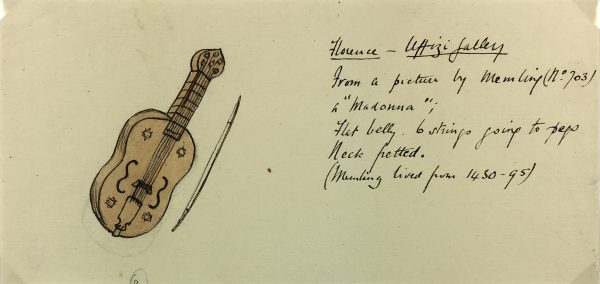 Florence – Uffizi Gallery
From a picture by Memling (No 703)
a "Madonna";
Flat belly. 6 strings going to pegs
Neck fretted.
(Memling lived from 1430-95)